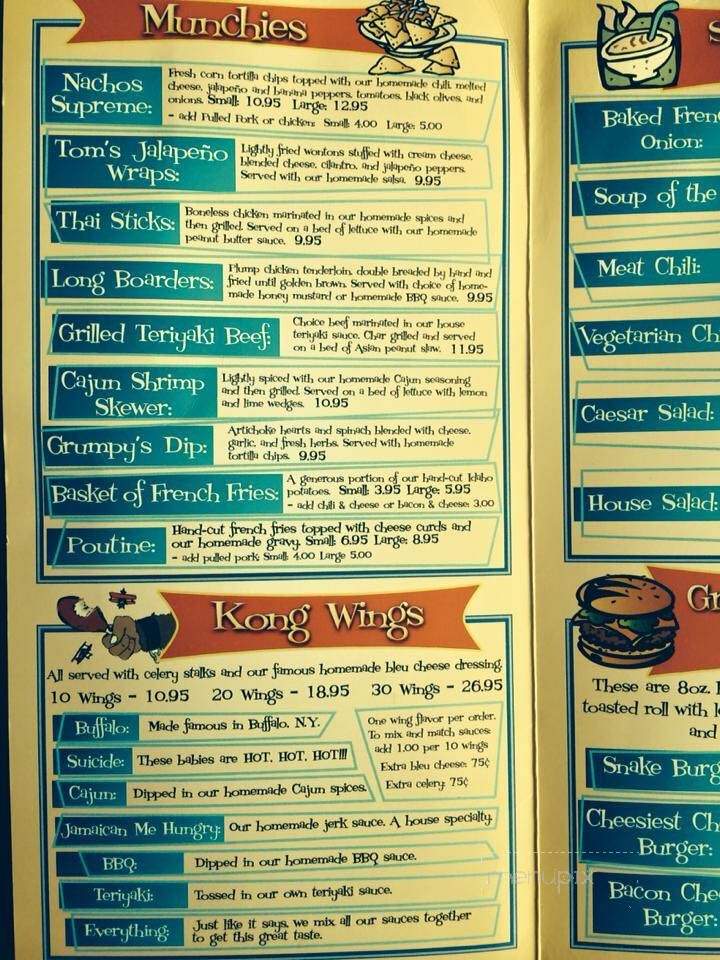 Munchies
Nachos
Supreme:
Fresh corn tortilla chips topped with our homemade chili, melted
cheese, jalapeño and banana peppers, tomatoes, black olives, and
onions. Small: 10.95 Large: 12.95
- add Pulled Pork or chicken: Small: 4.00 Large: 5.00
Tom's Jalapeño
Wraps:
Lightly fried wontons stuffed with cream cheese,
blended cheese, cilantro, and jalapeño peppers.
Served with our homemade salsa. 9.95
Thai Sticks:
Boneless chicken marinated in our homemade spices and
then grilled. Served on a bed of lettuce with our homemade
peanut butter sauce. 9.95
Long Boarders:
Plump chicken tenderloin, double breaded by hand and
fried until golden brown. Served with choice of home-
made honey mustard or homemade BBQ sauce. 9.95
Grilled Teriyaki Beef:
Choice beef marinated in our house
teriyaki sauce. Char grilled and served
on a bed of Asian peanut slaw. 11.95
Cajun Shrimp
Skewer:
Lightly spiced with our homemade Cajun seasoning
and then grilled. Served on a bed of lettuce with lemon
and lime wedges. 10.95
Grumpy's Dip:
Artichoke hearts and spinach blended with cheese,
garlic, and fresh herbs. Served with homemade
tortilla chips. 9.95
Basket of French Fries:
A generous portion of our hand-cut Idaho
potatoes. Small: 3.95 Large: 5.95
- add chili & cheese or bacon & cheese: 3.00
Poutine:
Hand-cut french fries topped with cheese curds and
our homemade gravy. Small: 6.95 Large: 8.95
- add pulled pork: Small: 4.00 Large 5.00
Kong Wings
All served with celery stalks and our famous homemade bleu cheese dressing.
10 Wings - 10.95 20 Wings - 18.95 30 Wings - 26.95
Buffalo: Made famous in Buffalo, N.Y.
Suicide: These babies are HOT, HOT, HOT!!!
Cajun: Dipped in our homemade Cajun spices.
One wing flavor per order.
To mix and match sauces:
add 1.00 per 10 wings
Extra bleu cheese: 75¢
Extra celery: 75¢
Jamaican Me Hungry: Our homemade jerk sauce. A house specialty.
BBQ: Dipped in our homemade BBQ sauce.
Teriyaki: Tossed in our own teriyaki sauce.
Everything: Just like it says, we mix all our sauces together
to get this great taste.
Baked Fren
Onion:
Soup of the
Meat Chili:
Vegetarian Ch
Caesar Salad:
House Salad:
Gr
These are 8oz.
toasted roll with l
and
Snake Burg
Cheesiest Ch
Burger:
Bacon Chee
Burger:
menupix